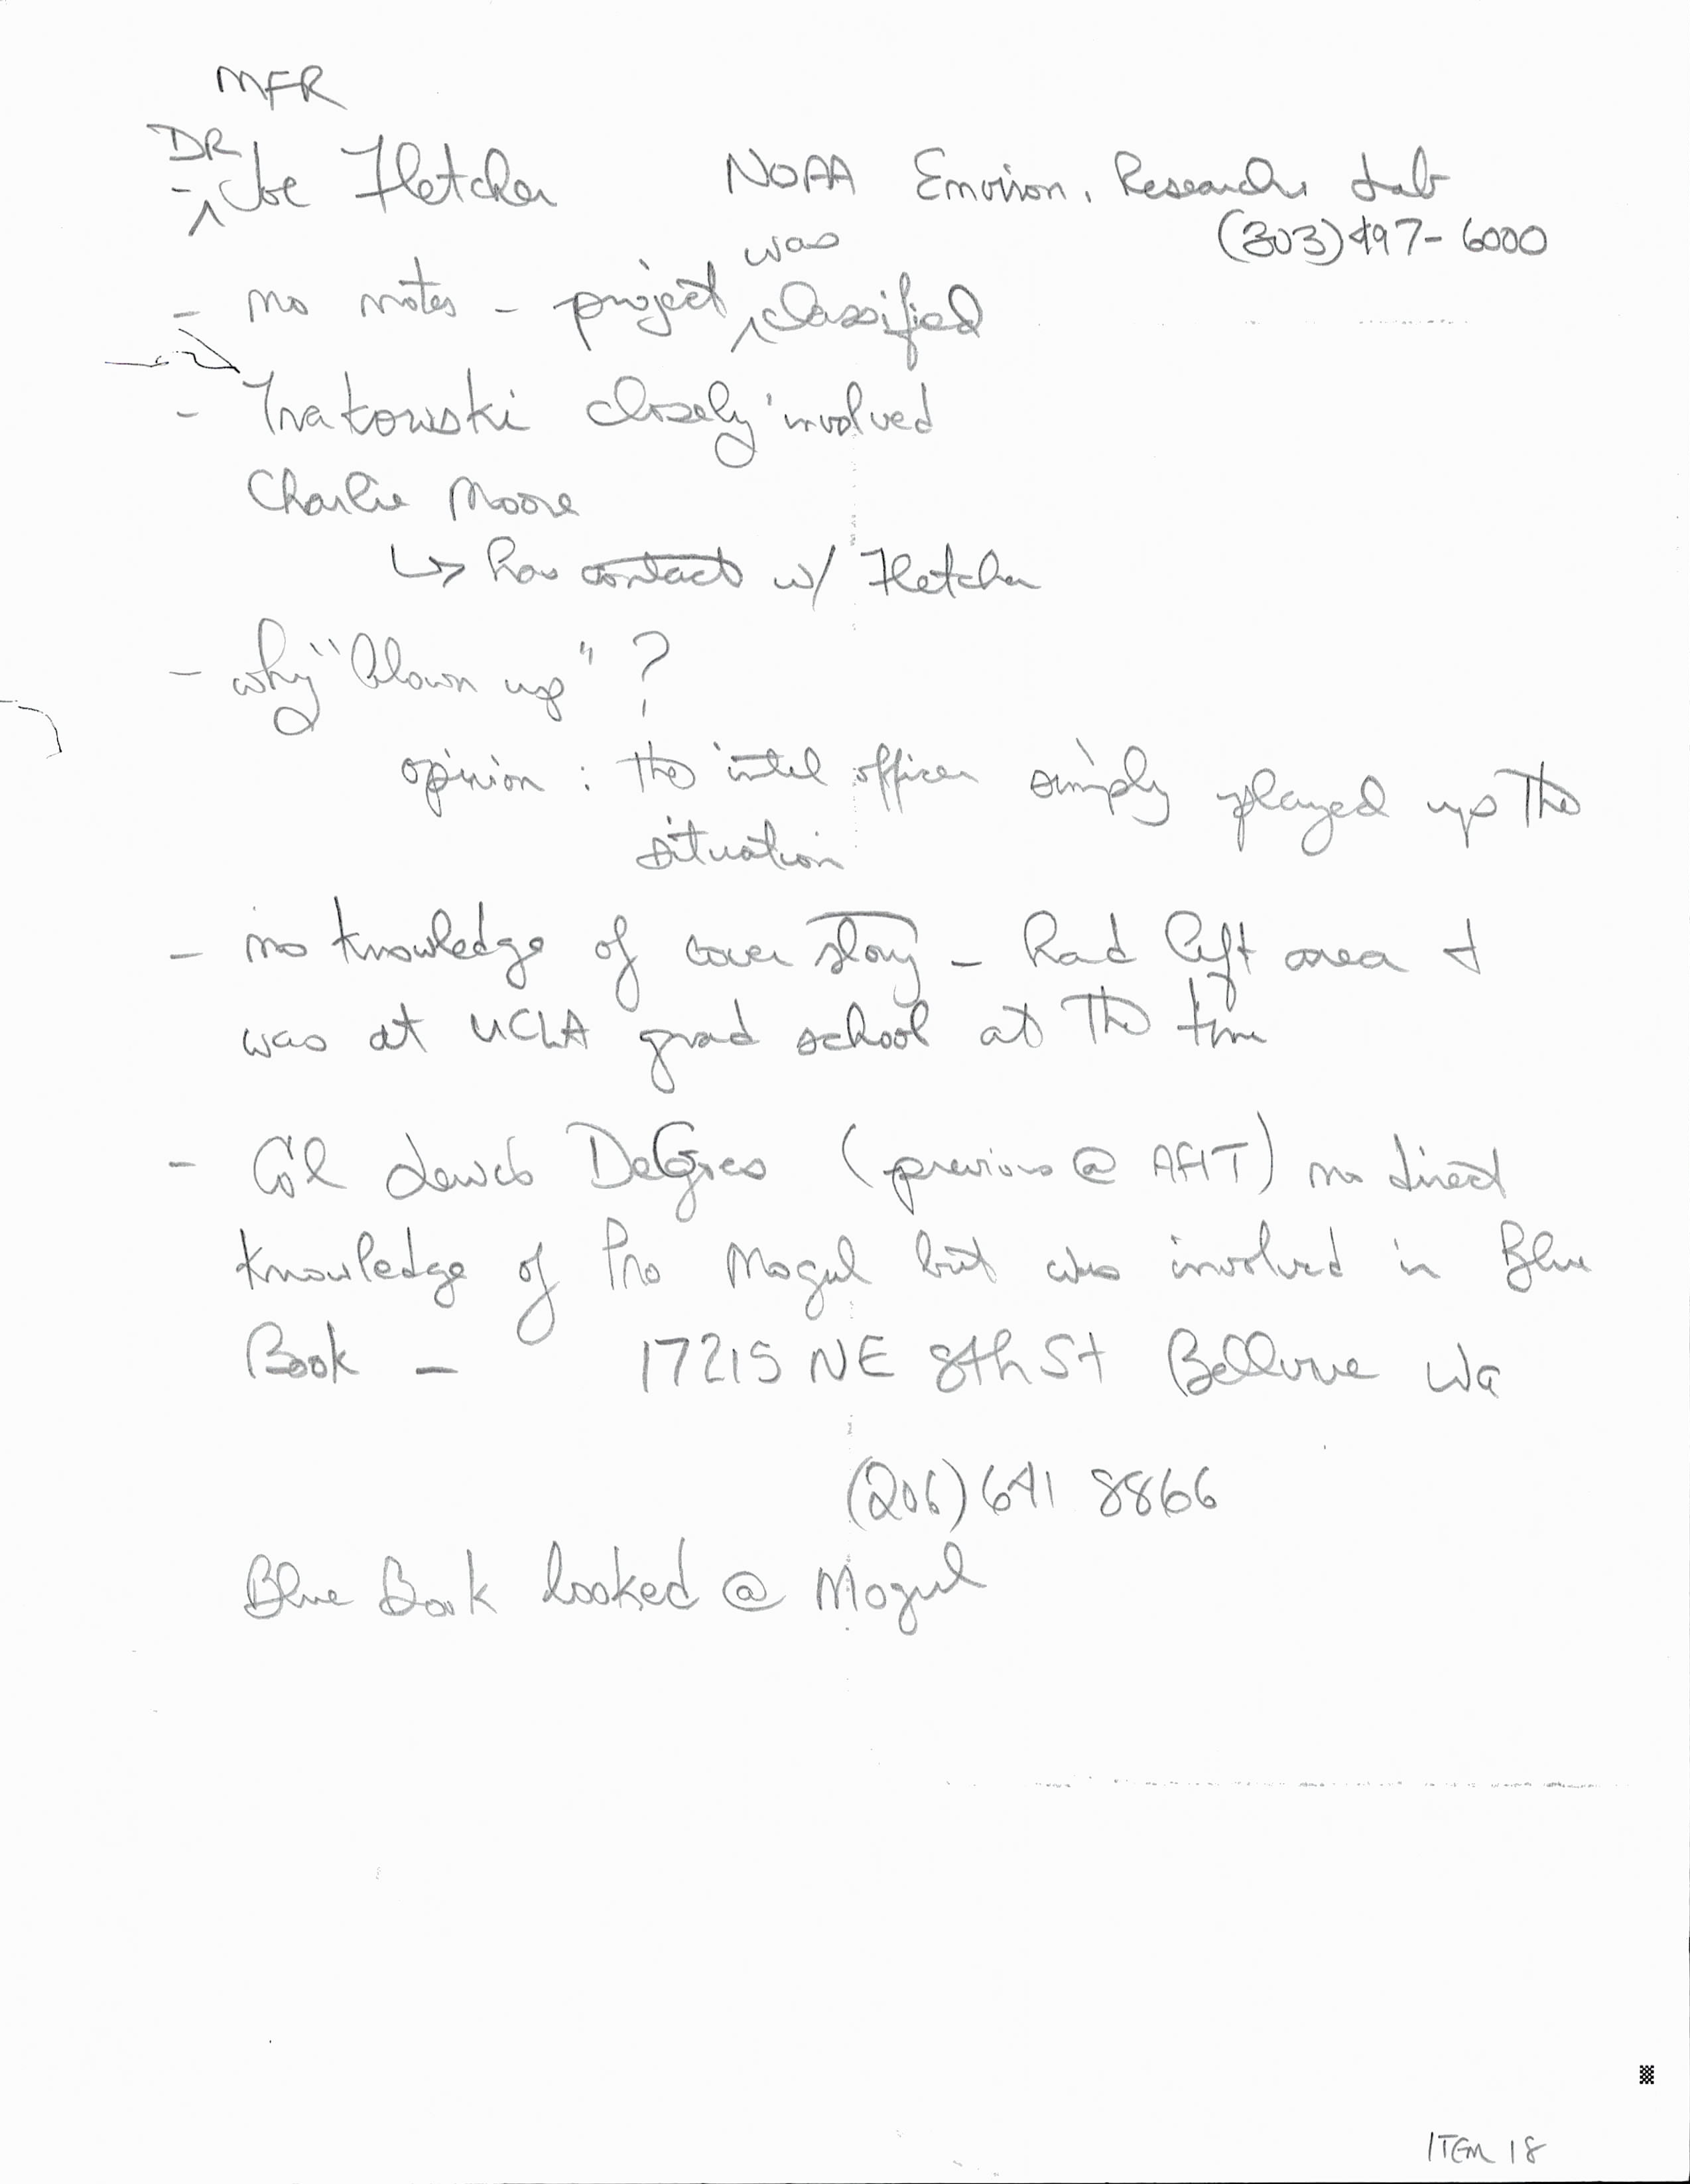 MFR
- DR Joe Fletcher NOAA Environ. Research Lab
(303) 497-6000
- no notes - project was classified
- Trakowski closely involved
Charlie Moore
↳ has contact w/ Fletcher
- why "blown up" ?
opinion : the intel officer simply played up the
situation
- no knowledge of cover story - had left area +
was at UCLA grad school at the time
- Col Lewis DeGoes (previous @ AFIT) no direct
knowledge of Pro Mogul but was involved in Blue
Book - 17215 NE 8th St Bellevue Wa
(206) 641 8866
Blue Book looked @ Mogul
ITEM 18